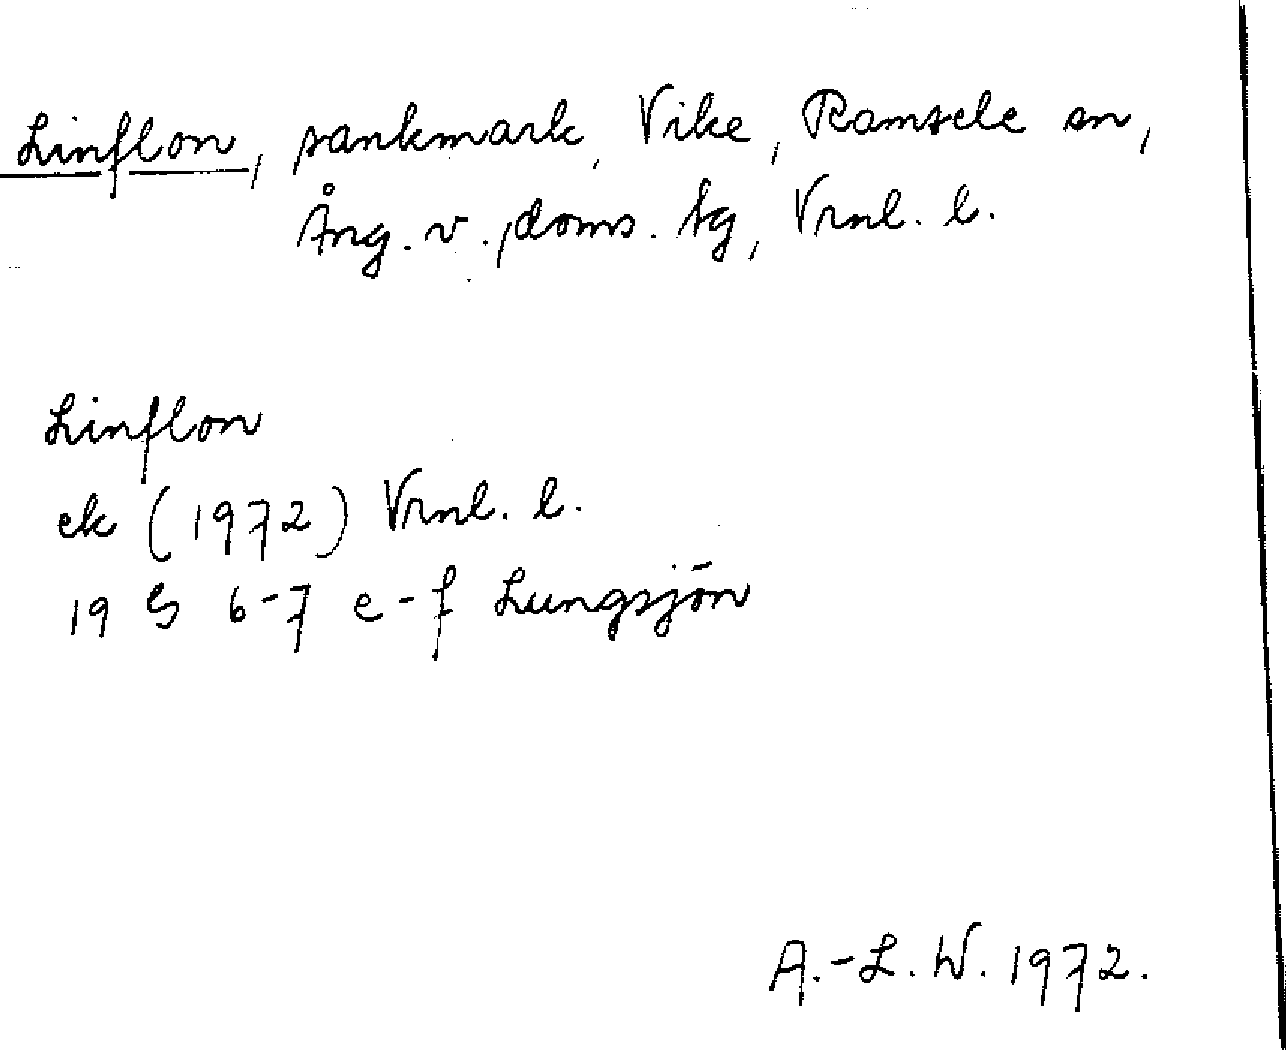 Linflon, sankmark, Vike, Ramsele sn,
Ång. v. doms. tg, Vrnl. l.
Linflon
ek (1972) Vrnl. l.
19 G 6-7 e-f Lungsjön
A.-L. W. 1972.